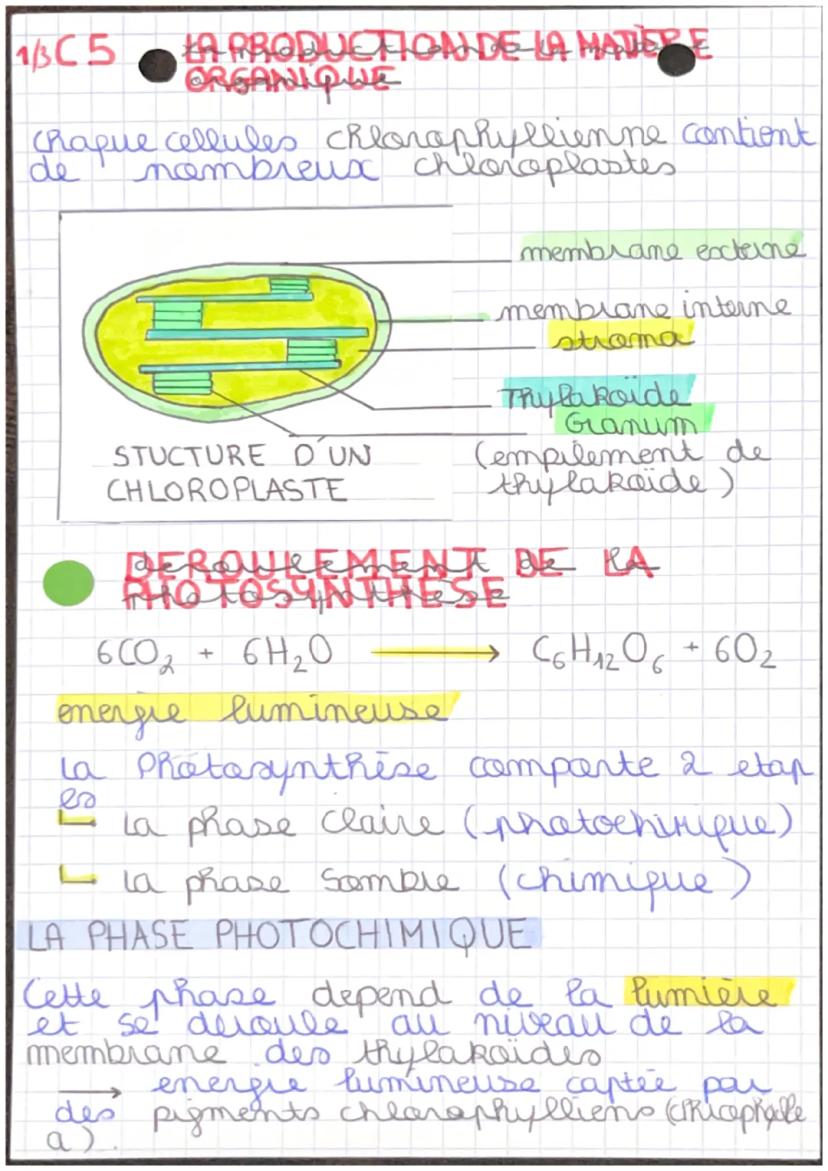 1/3 C5 LA PRODUCTION DE LA MATIÈRE
ORGANIQUE
Chaque cellules chlorophyllienne contient
de nombreux chloroplastes
membrane externe
membrane interne
stroma
Thylakoïde
Granum
(empilement de
thylakoïde)
STUCTURE D'UN
CHLOROPLASTE
DEROULEMENT DE LA
PHOTOSYNTHESE
6CO₂ + 6H₂O → C₆H₁₂O₆ + 6O₂
energie lumineuse
La Photosynthèse comporte 2 etap
es
La phase Claire (photochimique)
La phase Sombre (chimique)
LA PHASE PHOTOCHIMIQUE
Cette phase depend de la lumière
et se deroule au niveau de la
membrane des thylakoïdes
→ energie lumineuse captée par
des pigments chlorophylliens (chlorophylle
a).